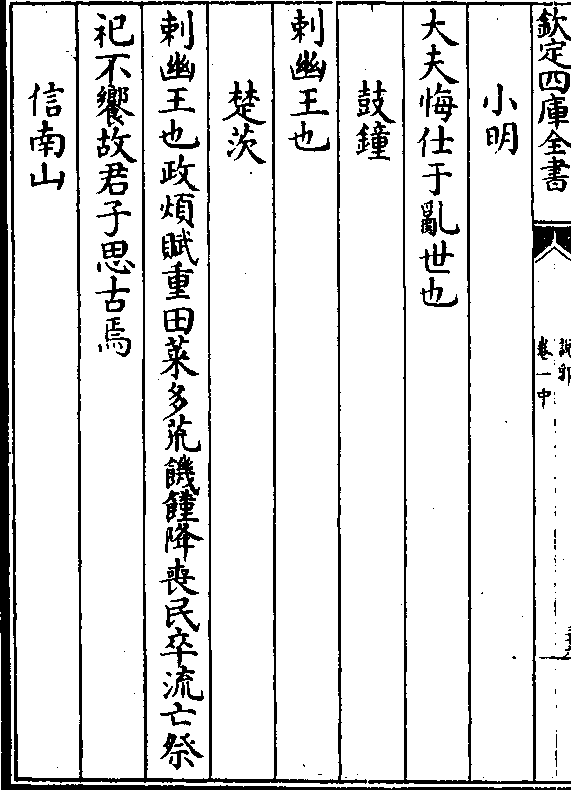 欽定四庫全書
說郛
卷一中
小明
大夫悔仕于亂世也
鼓鐘
刺幽王也
楚茨
刺幽王也政煩賦重田萊多荒饑饉降喪民卒流亡祭
祀不饗故君子思古焉
信南山